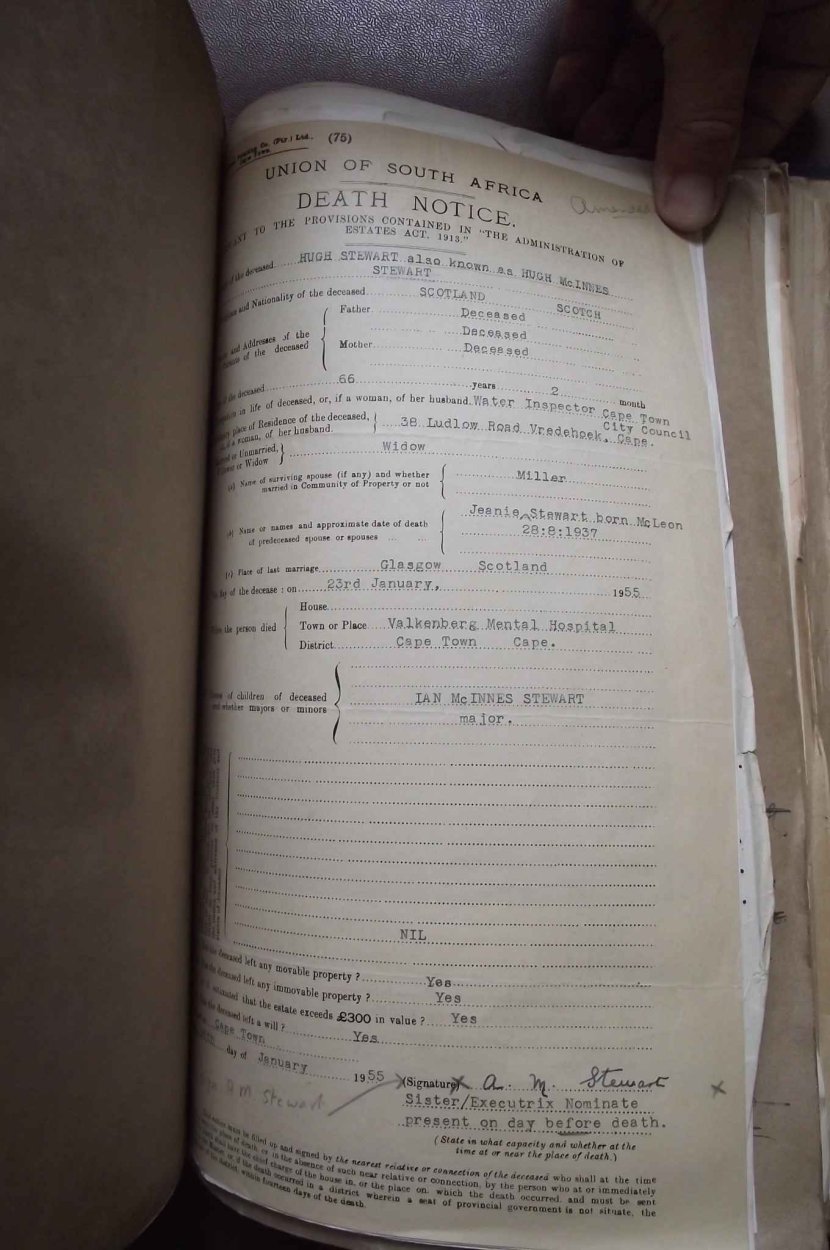 Printing Co. (Pty.) Ltd., (75)
Cape Town.
UNION OF SOUTH AFRICA
DEATH NOTICE.
TO THE PROVISIONS CONTAINED IN "THE ADMINISTRATION OF
ESTATES ACT. 1913."
of the deceased HUGH STEWART also known as HUGH McINNES
STEWART
and Nationality of the deceased SCOTLAND SCOTCH
Father Deceased
and Addresses of the Deceased
of the deceased Mother Deceased
of the deceased 66 years 2 month
in life of deceased, or, if a woman, of her husband. Water Inspector Cape Town
City Council
place of Residence of the deceased, 38 Ludlow Road Vredehoek, Cape.
if a woman, of her husband.
or Unmarried, Widow
or Widow
(a) Name of surviving spouse (if any) and whether Miller
married in Community of Property or not
Jeanie Stewart born McLeon
(b) Name or names and approximate date of death 28:8:1937
of predeceased spouse or spouses ... ...
(c) Place of last marriage Glasgow Scotland
day of the decease : on 23rd January, 1955
House
the person died Town or Place Valkenberg Mental Hospital
District Cape Town Cape.
of children of deceased IAN McINNES STEWART
and whether majors or minors major.
NIL
deceased left any movable property ? Yes
the deceased left any immovable property ? Yes
estimated that the estate exceeds £300 in value ? Yes
the deceased left a will ? Yes
Cape Town
day of January 1955 (Signature) A. M. Stewart
Sister/Executrix Nominate
A M Stewart
present on day before death.
(State in what capacity and whether at the
time at or near the place of death.)
must be filled up and signed by the nearest relative or connection of the deceased who shall at the time
of death, or in the absence of such near relative or connection, by the person who at or immediately
shall have the chief charge of the house in, or the place on, which the death occurred, and must be sent
if the death occurred in a district wherein a seat of provincial government is not situate, the
district, within fourteen days of the death.